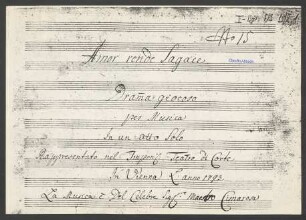 No 15
Amor rende Sagace
Drama giocoso
per Musica
In un atto Solo
Rappresentato nel Teatro di Corte
di Vienna L'anno 1793.
La Musica è Del Celebre Sigr Maestro Cimarosa